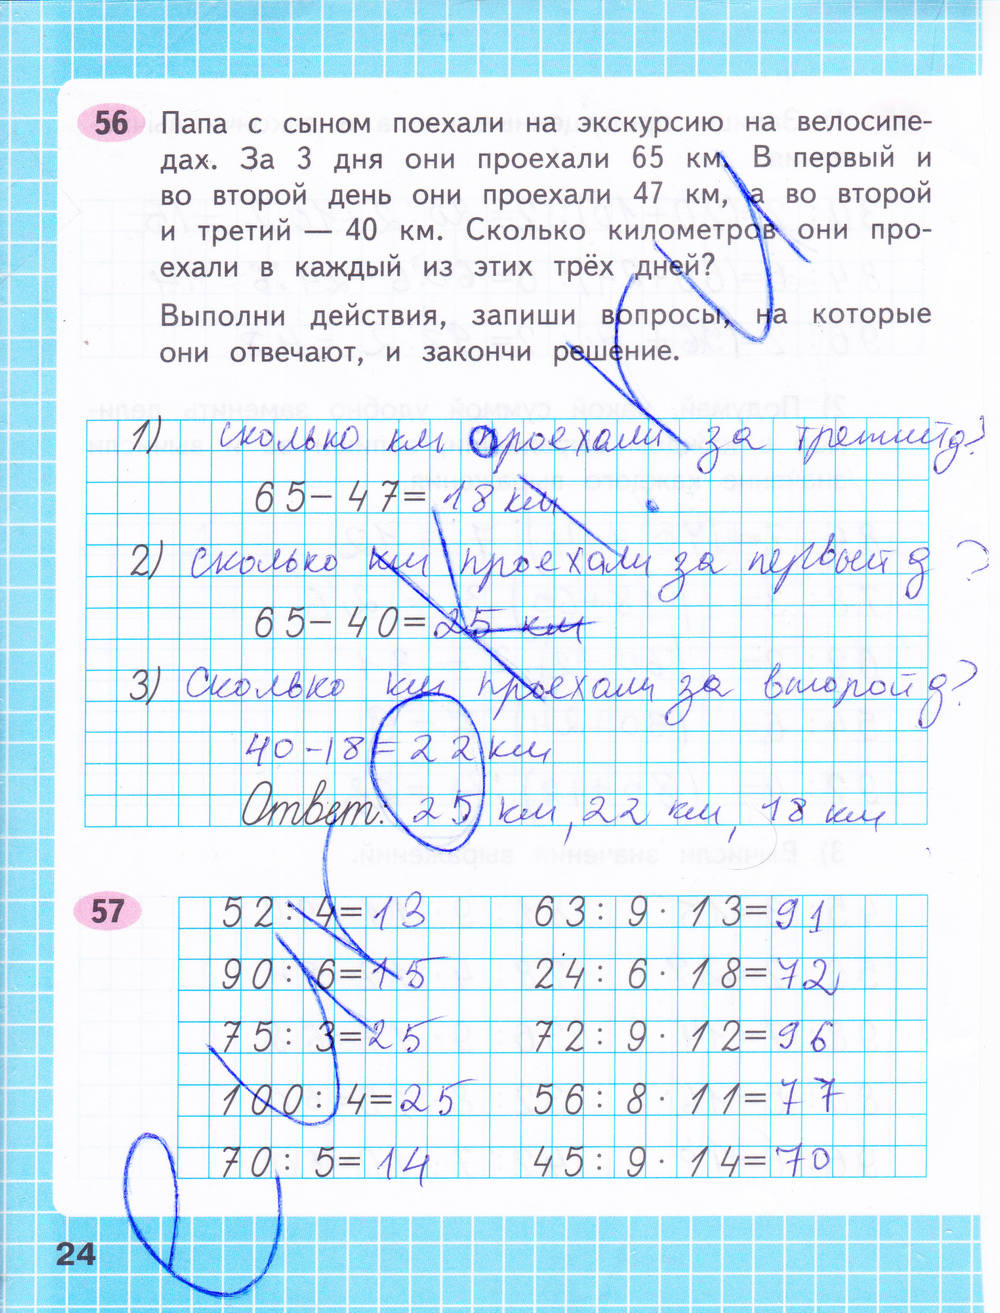 56 Папа с сыном поехали на экскурсию на велосипе-
дах. За 3 дня они проехали 65 км. В первый и
во второй день они проехали 47 км, а во второй
и третий — 40 км. Сколько километров они про-
ехали в каждый из этих трёх дней?
Выполни действия, запиши вопросы, на которые
они отвечают, и закончи решение.
1) сколько км проехали за третий д?
65 – 47 = 18 км
2) сколько км проехали за первый д?
65 – 40 = 25 км
3) Сколько км проехали за второй д?
40 - 18 = 22 км
Ответ: 25 км, 22 км, 18 км
57 52 : 4 = 13 63 : 9 · 13 = 91
90 : 6 = 15 24 : 6 · 18 = 72
75 : 3 = 25 72 : 9 · 12 = 96
100 : 4 = 25 56 : 8 · 11 = 77
70 : 5 = 14 45 : 9 · 14 = 70
24